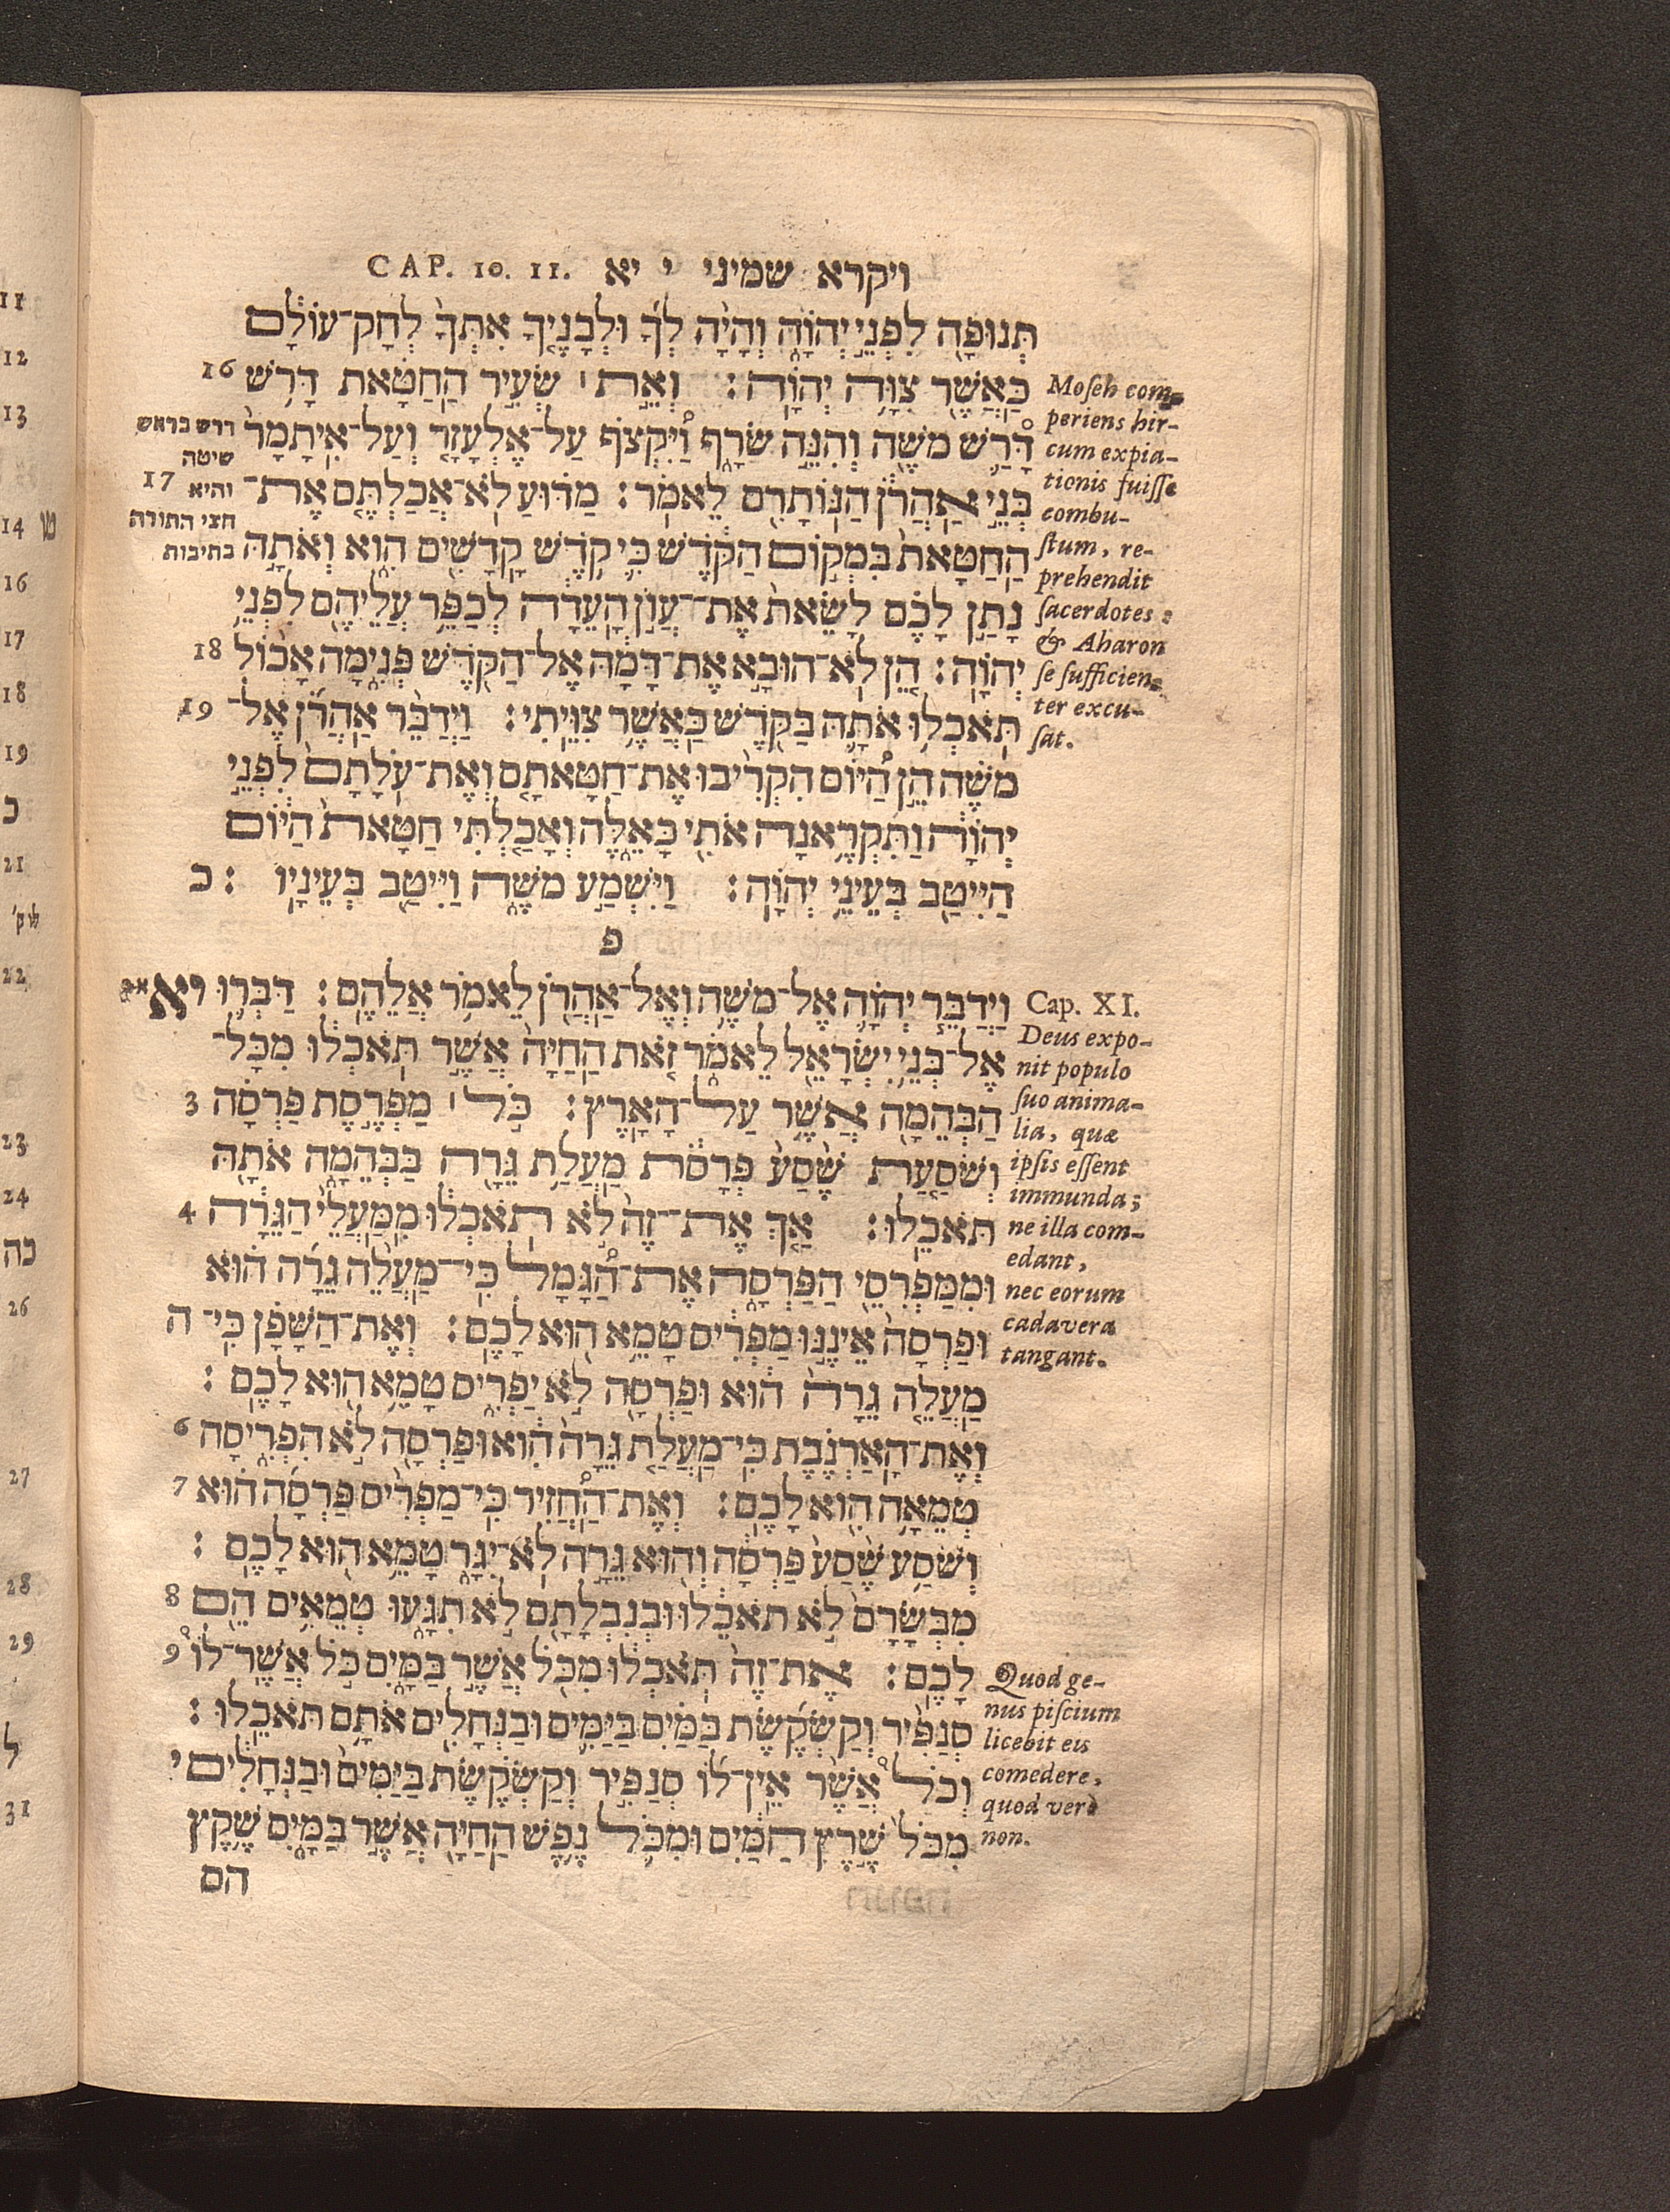 ויקרא שמיני י יא CAP. 10. 11.
תְּנוּפָ֖ה לִפְנֵ֣י יְהוָֹ֑ה וְהָיָ֨ה לְךָ֜ וּלְבָנֶ֤יךָ אִתְּךָ֙ לְחָק־עוֹלָ֔ם
כַּאֲשֶׁ֖ר צִוָּ֥ה יְהוָֹֽה׃ וְאֵ֣ת ׀ שְׂעִ֣יר הַֽחַטָּ֗את דָּרֹ֥שׁ 16
דָּרַ֛שׁ מֹשֶׁ֖ה וְהִנֵּ֣ה שֹׂרָ֑ף וַ֠יִּקְצֹף עַל־אֶלְעָזָ֤ר וְעַל־אִֽיתָמָר֙
בְּנֵ֣י אַֽהֲרֹ֔ן הַנּֽוֹתָרִ֖ם לֵאמֹֽר׃ מַדּ֗וּעַ לֹֽא־אֲכַלְתֶּ֤ם אֶת־ 17
הַֽחַטָּאת֙ בִּמְק֣וֹם הַקֹּ֔דֶשׁ כִּ֛י קֹ֥דֶשׁ קָֽדָשִׁ֖ים הִ֑וא וְאֹתָ֣הּ
נָתַ֣ן לָכֶ֗ם לָשֵׂאת֙ אֶת־עֲוֺ֣ן הָֽעֵדָ֔ה לְכַפֵּ֥ר עֲלֵיהֶ֖ם לִפְנֵ֥י
יְהוָֹֽה׃ הֵ֚ן לֹֽא־הוּבָ֣א אֶת־דָּמָ֔הּ אֶל־הַקֹּ֖דֶשׁ פְּנִ֑ימָה אָכ֨וֹל 18
תֹּֽאכְל֥וּ אֹתָ֛הּ בַּקֹּ֖דֶשׁ כַּאֲשֶׁ֥ר צִוֵּֽיתִי׃ וַיְדַבֵּ֨ר אַֽהֲרֹ֜ן אֶל־ 19
מֹשֶׁ֗ה הֵ֣ן הַ֠יּוֹם הִקְרִ֨יבוּ אֶת־חַטָּאתָ֤ם וְאֶת־עֹֽלָתָם֙ לִפְנֵ֣י
יְהוָֹ֔ה וַתִּקְרֶ֥אנָה אֹתִ֖י כָּאֵ֑לֶּה וְאָכַ֤לְתִּי חַטָּאת֙ הַיּ֔וֹם
הַיִּיטַ֖ב בְּעֵינֵ֥י יְהוָֹֽה׃ וַיִּשְׁמַ֣ע מֹשֶׁ֔ה וַיִּיטַ֖ב בְּעֵינָֽיו׃ כ
פ
וַיְדַבֵּ֧ר יְהוָֹ֛ה אֶל־מֹשֶׁ֥ה וְאֶֽל־אַֽהֲרֹ֖ן לֵאמֹ֥ר אֲלֵהֶֽם׃ דַּבְּר֛וּ יא
אֶל־בְּנֵ֥י יִשְׂרָאֵ֖ל לֵאמֹ֑ר זֹ֤את הַֽחַיָּה֙ אֲשֶׁ֣ר תֹּֽאכְל֔וּ מִכָּל־
הַבְּהֵמָ֖ה אֲשֶׁ֥ר עַל־הָאָֽרֶץ׃ כֹּ֣ל ׀ מַפְרֶ֣סֶת פַּרְסָ֗ה 3
וְשֹׁסַ֤עַת שֶׁ֙סַע֙ פְּרָסֹ֔ת מַֽעֲלַ֥ת גֵּרָ֖ה בַּבְּהֵמָ֑ה אֹתָ֖הּ
תֹּאכֵֽלוּ׃ אַ֤ךְ אֶת־זֶה֙ לֹ֣א תֹֽאכְל֔וּ מִֽמַּעֲלֵי֙ הַגֵּרָ֔ה 4
וּמִמַּפְרִסֵ֖י הַפַּרְסָ֑ה אֶֽת־הַ֠גָּמָל כִּֽי־מַֽעֲלֵ֨ה גֵרָ֜ה ה֗וּא
וּפַרְסָה֙ אֵינֶ֣נּוּ מַפְרִ֔יס טָמֵ֥א ה֖וּא לָכֶֽם׃ וְאֶת־הַשָּׁפָ֗ן כִּֽי־ ה
מַֽעֲלֵ֤ה גֵרָה֙ ה֔וּא וּפַרְסָ֖ה לֹ֣א יַפְרִ֑יס טָמֵ֥א ה֖וּא לָכֶֽם׃
וְאֶת־הָֽאַרְנֶ֗בֶת כִּֽי־מַֽעֲלַ֤ת גֵּרָה֙ הִ֔וא וּפַרְסָ֖ה לֹ֣א הִפְרִ֑יסָה 6
טְמֵאָ֥ה הִ֖וא לָכֶֽם׃ וְאֶת־הַ֠חֲזִיר כִּֽי־מַפְרִ֨יס פַּרְסָ֜ה ה֗וּא 7
וְשֹׁסַ֥ע שֶׁ֙סַע֙ פַּרְסָ֔ה וְה֖וּא גֵּרָ֣ה לֹֽא־יִגָּ֑ר טָמֵ֥א ה֖וּא לָכֶֽם׃
מִבְּשָׂרָם֙ לֹ֣א תֹאכֵ֔לוּ וּבְנִבְלָתָ֖ם לֹ֣א תִגָּ֑עוּ טְמֵאִ֥ים הֵ֖ם 8
לָכֶֽם׃ אֶת־זֶה֙ תֹּֽאכְל֔וּ מִכֹּ֖ל אֲשֶׁ֣ר בַּמָּ֑יִם כֹּ֣ל אֲשֶׁר־לוֹ֩ 9
סְנַפִּ֨יר וְקַשְׂקֶ֜שֶׂת בַּמַּ֗יִם בַּיַּמִּ֛ים וּבַנְּחָלִ֖ים אֹתָ֥ם תֹּאכֵֽלוּ׃
וְכֹל֩ אֲשֶׁ֨ר אֵֽין־ל֜וֹ סְנַפִּ֣יר וְקַשְׂקֶ֗שֶׂת בַּיַּמִּים֙ וּבַנְּחָלִ֔ים י
מִכֹּל֙ שֶׁ֣רֶץ הַמַּ֔יִם וּמִכֹּ֛ל נֶ֥פֶשׁ הַֽחַיָּ֖ה אֲשֶׁ֣ר בַּמָּ֑יִם שֶׁ֥קֶץ
הם
Moſeh com-
periens hir-
cum expia-
tionis fuiſſe
combu-
ſtum, re-
prehendit
ſacerdotes:
& Aharon
ſe ſufficien-
ter excu-
ſat.
Cap. XI.
Deus expo-
nit populo
ſuo anima-
lia, quæ
ipſis eſſent
immunda;
ne illa com-
edant,
nec eorum
cadavera
tangant.
Quod ge-
nus piſcium
licebit eis
comedere,
quod verò
non.
דרש בראש
שיטה
והיא
חצי התורה
בתיבות
11
12
13
14 ט
16
17
18
19
כ
21
22
23
24
כה
26
27
28
29
ל
31